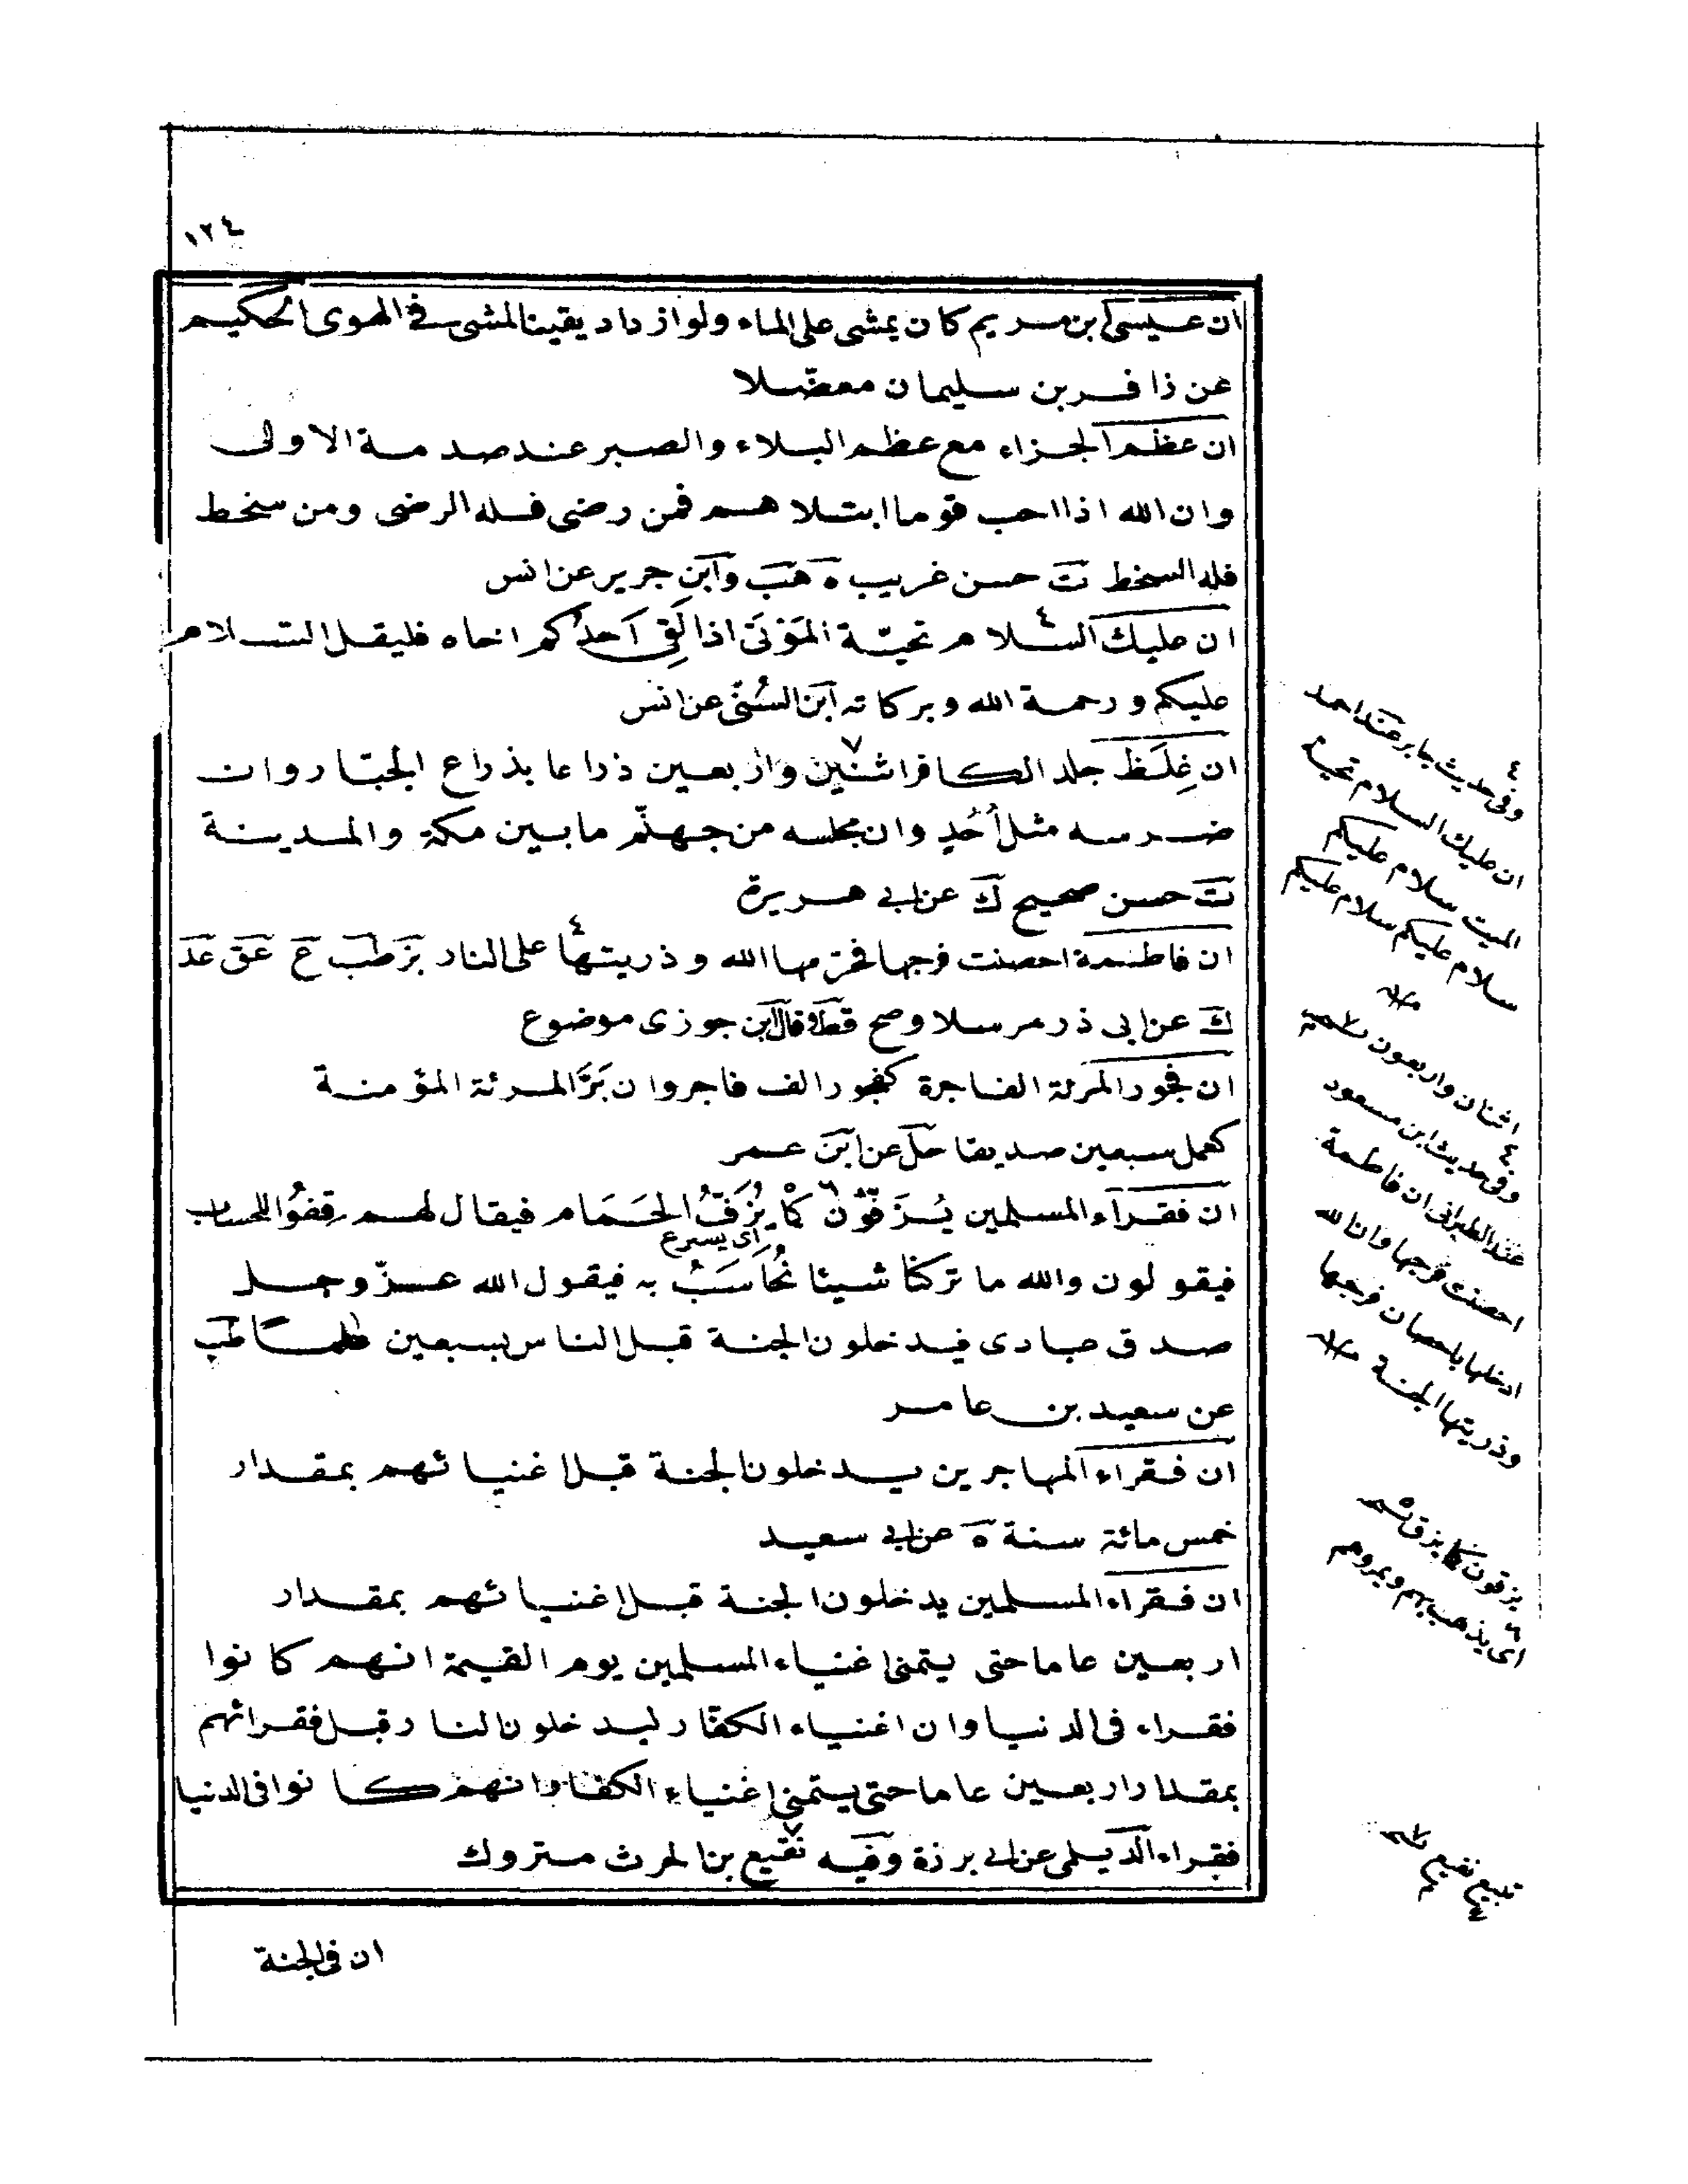 ١٢٤
ان عيسى ابن مريم كان يمشى على الماء ولو ازداد يقينا لمشى فى الهوى الحكيم
عن زافر بن سليمان معضلا
ان عظم الجزاء مع عظم البلاء والصبر عند صدمة الاولى
وان الله اذا احب قوما ابتلاهم فمن رضى فله الرضى ومن سخط
فله السخط ت حسن غريب ه هب وابن جرير عن انس
ان عليك السلام تحيّة المَوْتَى اذا لَقِىَ اَحدُكم اخاه فليقل السلام
عليكم ورحمة الله وبركاته ابن السُّنّى عن انس
ان غِلَظَ جلد الكافر اثنَيْن واربعين ذراعا بذراع الجبّار وان
ضرسه مثل اُحُدٍ وان مجلسه من جهنّم ما بين مكة والمدينة
ت حسن صحيح ك عن ابى هريرة
ان فاطمة احصنت فرجها فحرمها الله وذريتها على النار بز طب ع عق عد
ك عن ابى ذر مرسلا وصح قط وقال ابن جوزى موضوع
ان فجور المرئة الفاجرة كفجور الف فاجر وان بَرَّ المرئة المؤمنة
كعمل سبعين صديقا حل عن ابن عمر
ان فقرآء المسلمين يُزَفّوْن كما يُزَفُّ الحَمَام فيقال لهم قِفوُا للحساب
اى يسرع
فيقولون والله ما تركنا شيئا نُحَاسَبُ به فيقول الله عزّ وجل
صدق عبادى فيدخلون الجنة قبل الناس بسبعين عاما طب
عن سعيد بن عامر
ان فقراء المهاجرين يدخلون الجنة قبل اغنيائهم بمقدار
خمس مائة سنة ه عن ابى سعيد
ان فقراء المسلمين يدخلون الجنة قبل اغنيائهم بمقدار
اربعين عاما حتى يتمنى اغنياء المسلمين يوم القيمة انهم كانوا
فقراء فى الدنيا وان اغنياء الكفّار ليدخلون النار قبل فقرائهم
بمقدار اربعين عاما حتى يتمنى اغنياء الكفار انهم كانوا فى الدنيا
فقراء الديلمى عن ابى برزة وفيه نفيع بن الحرث متروك
ان فى الجنة
٤
وفى حديث جابر عند احمد
ان عليك السلام تحية
الميت سلام عليكم
سلام عليكم سلام عليكم
اثنان واربعون
٤
وفى حديث ابن مسعود
عند الطبرانى ان فاطمة
احصنت فرجها وان الله
ادخلها باحصان فرجها
وذريتها الجنة
يزفون كما يزف
اى يذهب بهم ويمرو هم
نفيع